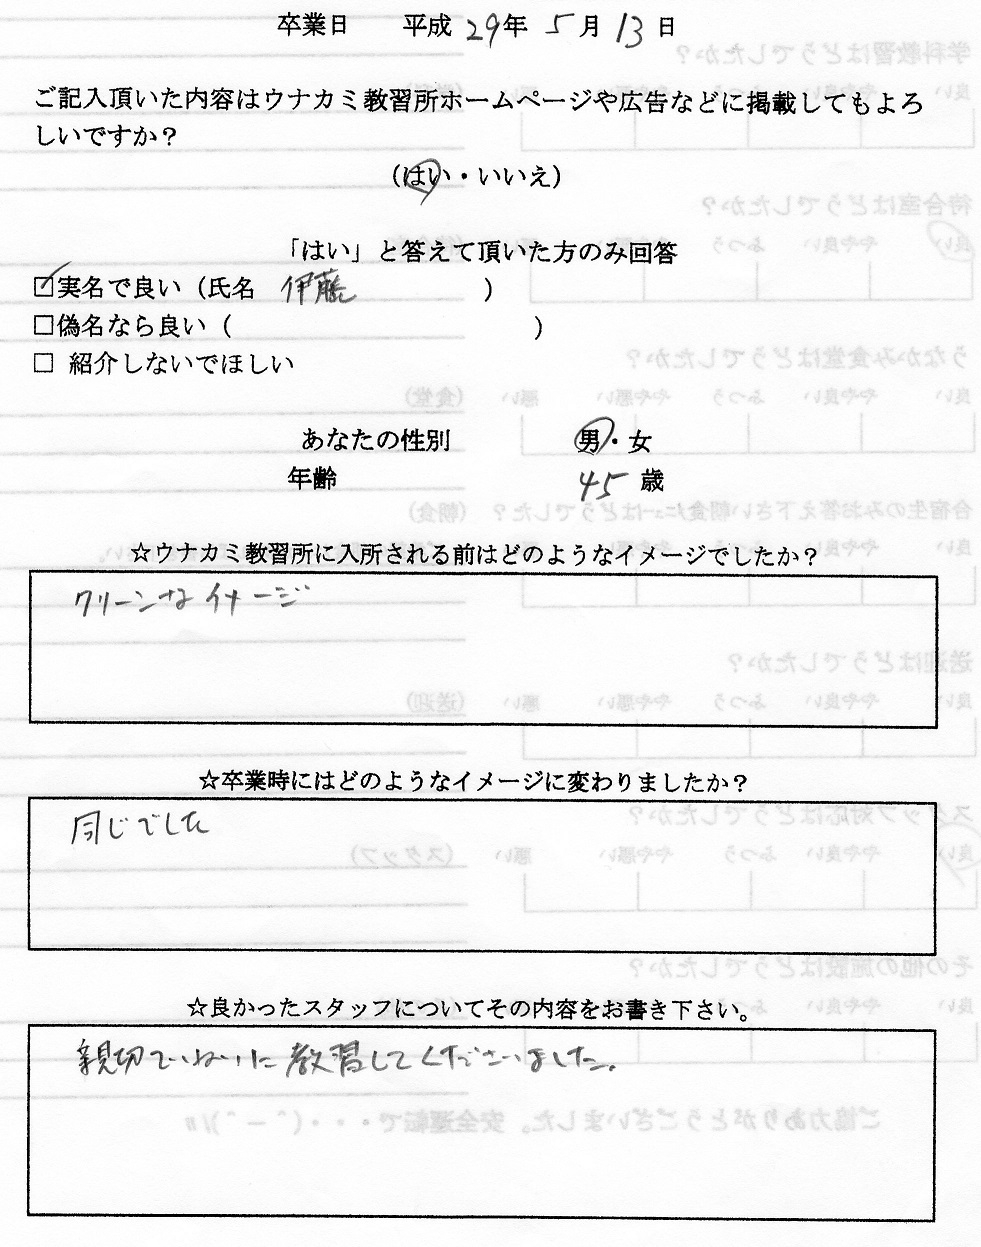 卒業日　平成 29年 5月 13日
ご記入頂いた内容はウナカミ教習所ホームページや広告などに掲載してもよろ
しいですか？
（はい・いいえ）
「はい」と答えて頂いた方のみ回答
☑実名で良い（氏名　伊藤　）
□偽名なら良い（　）
□ 紹介しないでほしい
あなたの性別　男・女
年齢　45 歳
☆ウナカミ教習所に入所される前はどのようなイメージでしたか？
クリーンなイメージ
☆卒業時にはどのようなイメージに変わりましたか？
同じでした
☆良かったスタッフについてその内容をお書き下さい。
親切ていねいに教習してくださいました。